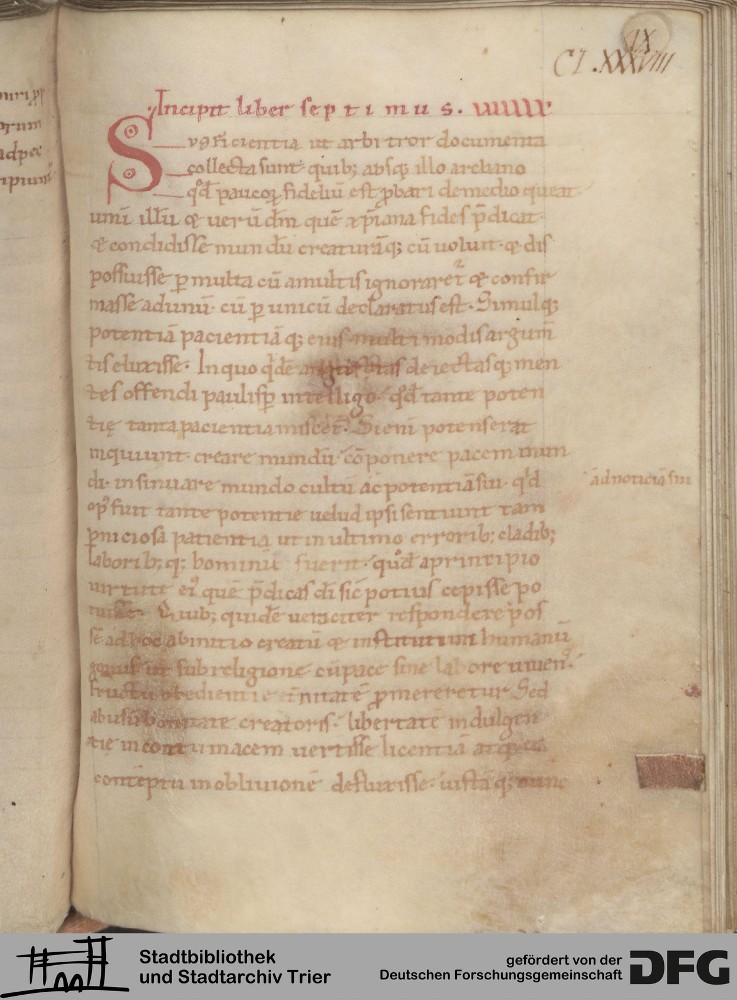 IX
CL.XXXVIII
Incipit liber septimus.
Sufficientia ut arbitror documenta
collecta sunt· quib; absq; illo archano
qđ paucoꝝ fideliū est ꝓbari de medio queat
unū illū & uerū dm̄ quē xp̄iana fides p̄dicat·
& condidisse mundū creaturāq; cū uoluit· & dis
posuisse ꝑ multa cū a multis ignoraret᷑ & confir
masse ad unū· cū ꝑ unicū declaratus est· Simulq;
potentiā pacientiāq; eius multimodis argum̄
tis eluxisse· In quo qidē angustas deiectasq; men
tes offendi paulisꝑ intelligo· qđ tante poten
tię tanta pacientia miscet᷑· Si eni potens erat
inquiunt· creare mundū· cōponere pacem mun
di· insinuare mundo cultū ac potentiā sui· qid
op᷒ fuit tante potentie uelud ipsi sentiunt tam
ꝑniciosa patientia ut in ultimo errorib; cladib;
laborib;q; hominū fuerit· quođ a principio
uirtute ei᷒ quē p̄dicas dī sic potius cepisse po
Quib; quidē ueraciter respondere pos
sē ad hoc ab initio creatū & institutum humanū
genus ut sub religione cū pace sine labore uiuens
fructu obedientie ęt̄nitatē ꝓmereretur Sed
abusū bonitate creatoris· libertatē indulgen
tię in contumacem uertisse licentiā atq; ex
contēptu in obliuionē defluxisse· iustāq; nunc
ad noticiā sui
Stadtbibliothek
und Stadtarchiv Trier
gefördert von der
Deutschen Forschungsgemeinschaft
DFG